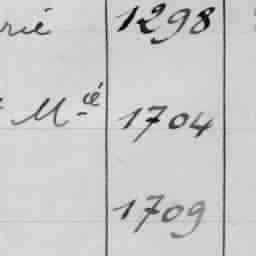 rié 1298
Mié 1704
1709